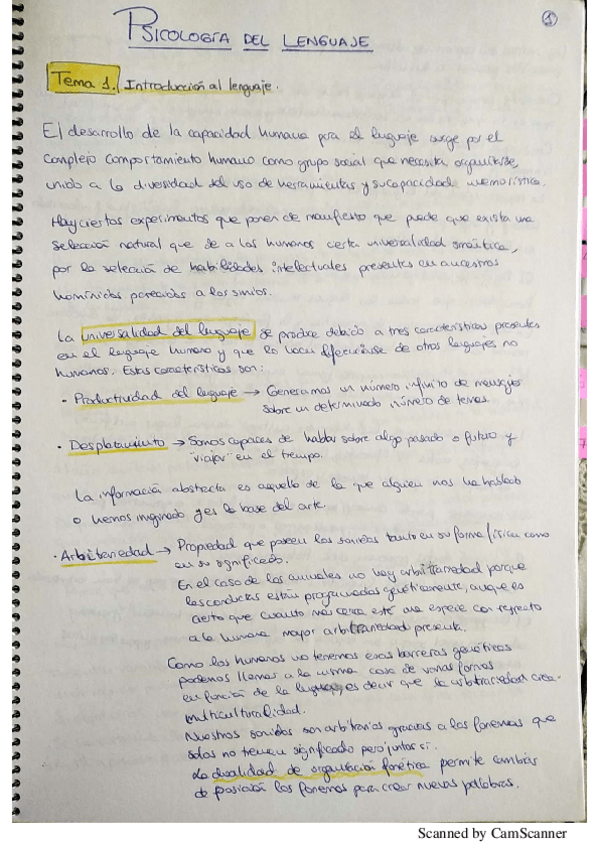 1
PSICOLOGÍA DEL LENGUAJE
Tema 1. Introducción al lenguaje.
El desarrollo de la capacidad humana para el lenguaje surge por el
complejo comportamiento humano como grupo social que necesita organizarse,
unido a la diversidad del uso de herramientas y su capacidad memorística.
Hay ciertos experimentos que ponen de manifiesto que puede que exista una
selección natural que de a los humanos cierta universalidad
por la selección de habilidades intelectuales presentes en ancestros
homínidos parecidos a los simios.
La universalidad del lenguaje se produce debido a tres características presentes
en el lenguaje humano y que lo hacen diferenciarse de otros lenguajes no
humanos. Estas características son:
· Productividad del lenguaje → Generamos un número infinito de mensajes
sobre un determinado número de temas.
· Desplazamiento → Somos capaces de hablar sobre algo pasado o futuro y
"viajar" en el tiempo.
La información abstracta es aquello de lo que alguien nos ha hablado
o hemos imaginado y es la base del arte.
· Arbitrariedad → Propiedad que poseen los sonidos tanto en su forma física como
en su significado.
En el caso de los animales no hay arbitrariedad porque
las conductas están programadas genéticamente, aunque es
cierto que cuanto más cerca esté una especie con respecto
a la humana mayor arbitrariedad presenta.
Como los humanos no tenemos esas barreras genéticas
podemos llamar a la misma cosa de varias formas
en función de la lengua, es decir que la arbitrariedad crea
multiculturalidad.
Nuestros sonidos son arbitrarios gracias a los fonemas que
solos no tienen significado pero juntos sí.
La dualidad de organización fonética permite cambiar
de posición los fonemas para crear nuevas palabras.
Scanned by CamScanner